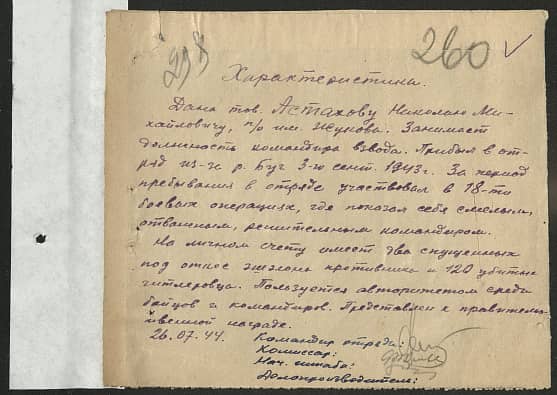 298
260
Характеристика.
Дана тов. Астахову Николаю Ми-
хайловичу, п/о им. Жукова. Занимает
должность командира взвода. Прибыл в от-
ряд из-за р. Буг 3-го сент. 1943 г. За период
пребывания в отряде участвовал в 18-ти
боевых операциях, где показал себя смелым,
отважным, решительным командиром.
На личном счету имеет два спущенных
под откос эшелона противника и 120 убитых
гитлеровца. Пользуется авторитетом среди
бойцов и командиров. Представлен к правитель-
ственной награде.
26.07.44. Командир отряда:
Комиссар:
Нач. штаба:
Делопроизводитель: